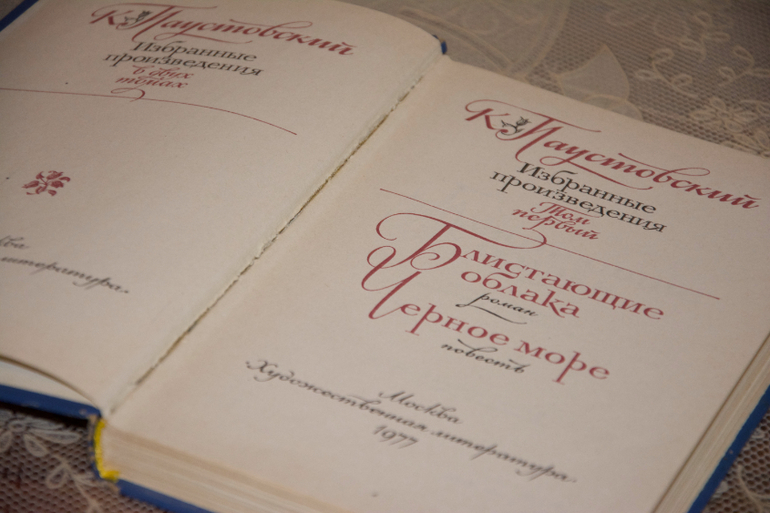 К Паустовский
Избранные
произведения
в двух
томах
литература»
К Паустовский
Избранные
произведения
Том
первый
Блистающие
облака
роман
Черное море
повесть
Москва
«Художественная литература»
1977